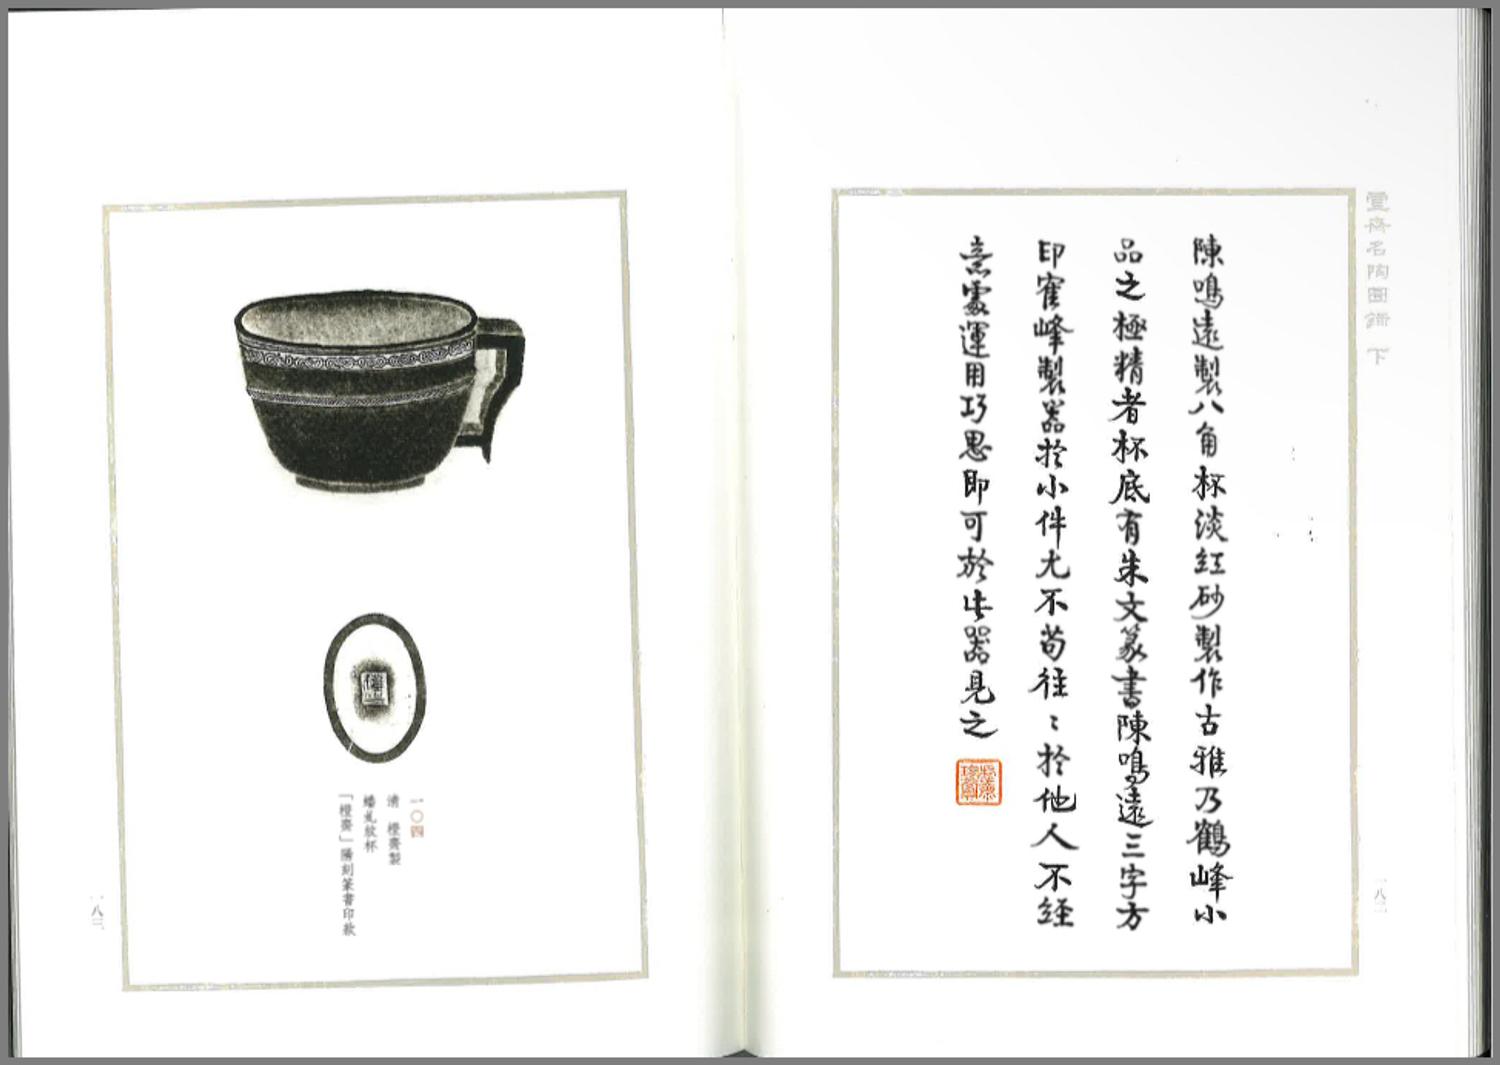 名陶圖錄 下
陳鳴遠製八角杯淡紅砂製作古雅乃鶴峰小
品之極精者杯底有朱文篆書陳鳴遠三字方
印寉峰製器於小件尤不苟往〻於他人不經
意處運用巧思即可於此器見之
一八二
一〇四
清 橙齋製
蟠虬紋杯
「橙齋」陽刻篆書印款
一八三